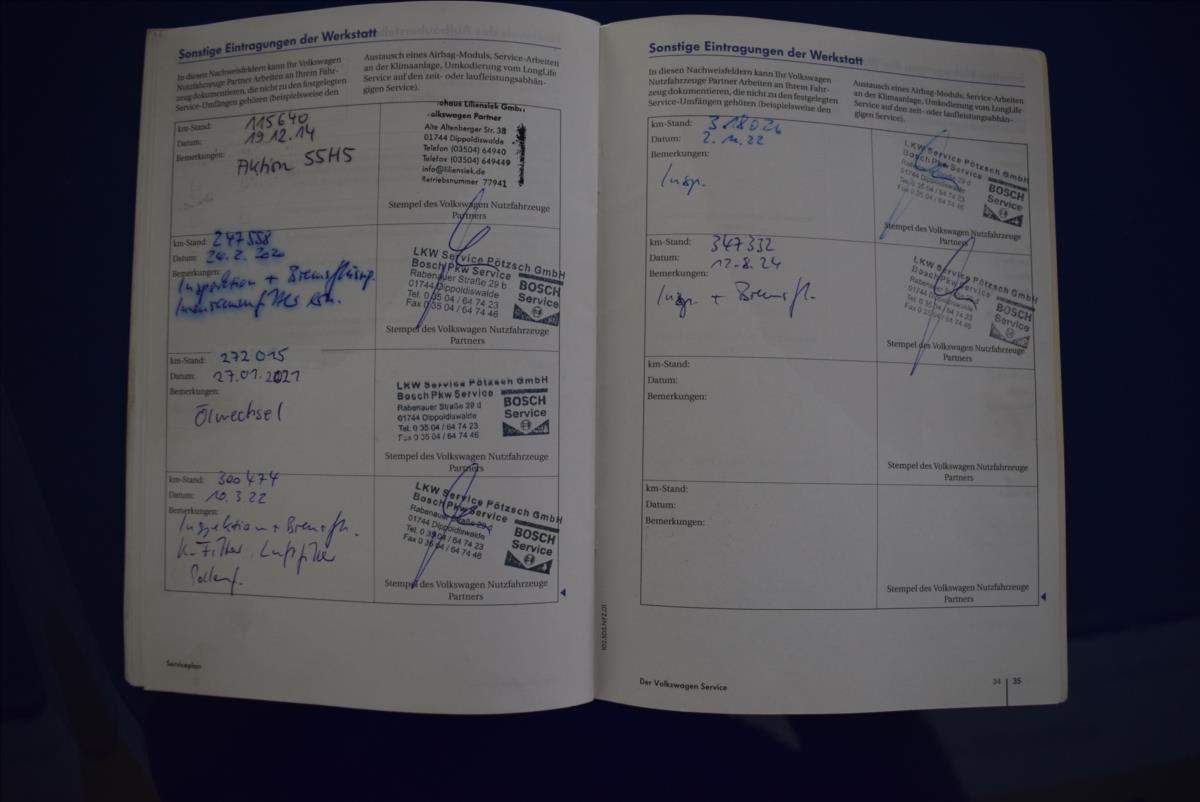 Sonstige Eintragungen der Werkstatt
In diesen Nachweisfeldern kann Ihr Volkswagen
Nutzfahrzeuge Partner Arbeiten an Ihrem Fahr-
zeug dokumentieren, die nicht zu den festgelegten
Service-Umfängen gehören (beispielsweise den
Austausch eines Airbag-Moduls, Service-Arbeiten
an der Klimaanlage, Umkodierung vom LongLife
Service auf den zeit- oder laufleistungsabhän-
gigen Service).
km-Stand: 115640
Datum: 19.12.14
Bemerkungen:
Aktion 55H5
ohaus Liliensiek GmbH
olkswagen Partner
Alte Altenberger Str. 38
01744 Dippoldiswalde
Telefon (03504) 64940
Telefax (03504) 649449
info@liliensiek.de
Betriebsnummer 77941
Stempel des Volkswagen Nutzfahrzeuge
Partners
km-Stand: 247558
Datum: 26.2.2020
Bemerkungen:
Inspektion + Bremsflüssig.
LKW Service Pötzsch GmbH
Bosch Pkw Service
Rabenauer Straße 29 b
01744 Dippoldiswalde
Tel. 0 35 04 / 64 74 23
Fax 0 35 04 / 64 74 46
BOSCH
Service
Stempel des Volkswagen Nutzfahrzeuge
Partners
km-Stand: 272 015
Datum: 27.01.2021
Bemerkungen:
Ölwechsel
LKW Service Pötzsch GmbH
Bosch Pkw Service
Rabenauer Straße 29 d
01744 Dippoldiswalde
Tel. 0 35 04 / 64 74 23
Fax 0 35 04 / 64 74 46
BOSCH
Service
Stempel des Volkswagen Nutzfahrzeuge
Partners
km-Stand: 300474
Datum: 10.3.22
Bemerkungen:
Inspektion + Bremsfl.
K-Filter, Luftfilter
Pollenf.
LKW Service Pötzsch GmbH
Bosch Pkw Service
Rabenauer Straße 29 d
01744 Dippoldiswalde
Tel. 0 35 04 / 64 74 23
Fax 0 35 04 / 64 74 46
BOSCH
Service
Stempel des Volkswagen Nutzfahrzeuge
Partners
Serviceplan
Sonstige Eintragungen der Werkstatt
In diesen Nachweisfeldern kann Ihr Volkswagen
Nutzfahrzeuge Partner Arbeiten an Ihrem Fahr-
zeug dokumentieren, die nicht zu den festgelegten
Service-Umfängen gehören (beispielsweise den
Austausch eines Airbag-Moduls, Service-Arbeiten
an der Klimaanlage, Umkodierung vom LongLife
Service auf den zeit- oder laufleistungsabhän-
gigen Service).
km-Stand: 318024
Datum: 2.11.22
Bemerkungen:
Insp.
LKW Service Pötzsch GmbH
Bosch Pkw Service
Rabenauer Straße 29 d
01744 Dippoldiswalde
Tel. 0 35 04 / 64 74 23
Fax 0 35 04 / 64 74 46
BOSCH
Service
Stempel des Volkswagen Nutzfahrzeuge
Partners
km-Stand: 347332
Datum: 12.8.24
Bemerkungen:
Insp. + Bremsfl.
LKW Service Pötzsch GmbH
Bosch Pkw Service
Rabenauer Straße 29 d
01744 Dippoldiswalde
Tel. 0 35 04 / 64 74 23
Fax 0 35 04 / 64 74 46
BOSCH
Service
Stempel des Volkswagen Nutzfahrzeuge
Partners
km-Stand:
Datum:
Bemerkungen:
Stempel des Volkswagen Nutzfahrzeuge
Partners
km-Stand:
Datum:
Bemerkungen:
Stempel des Volkswagen Nutzfahrzeuge
Partners
Der Volkswagen Service
34 35